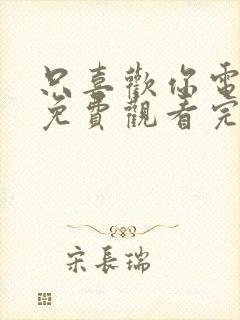 只喜歡你電
免費觀看完
宋長瑞